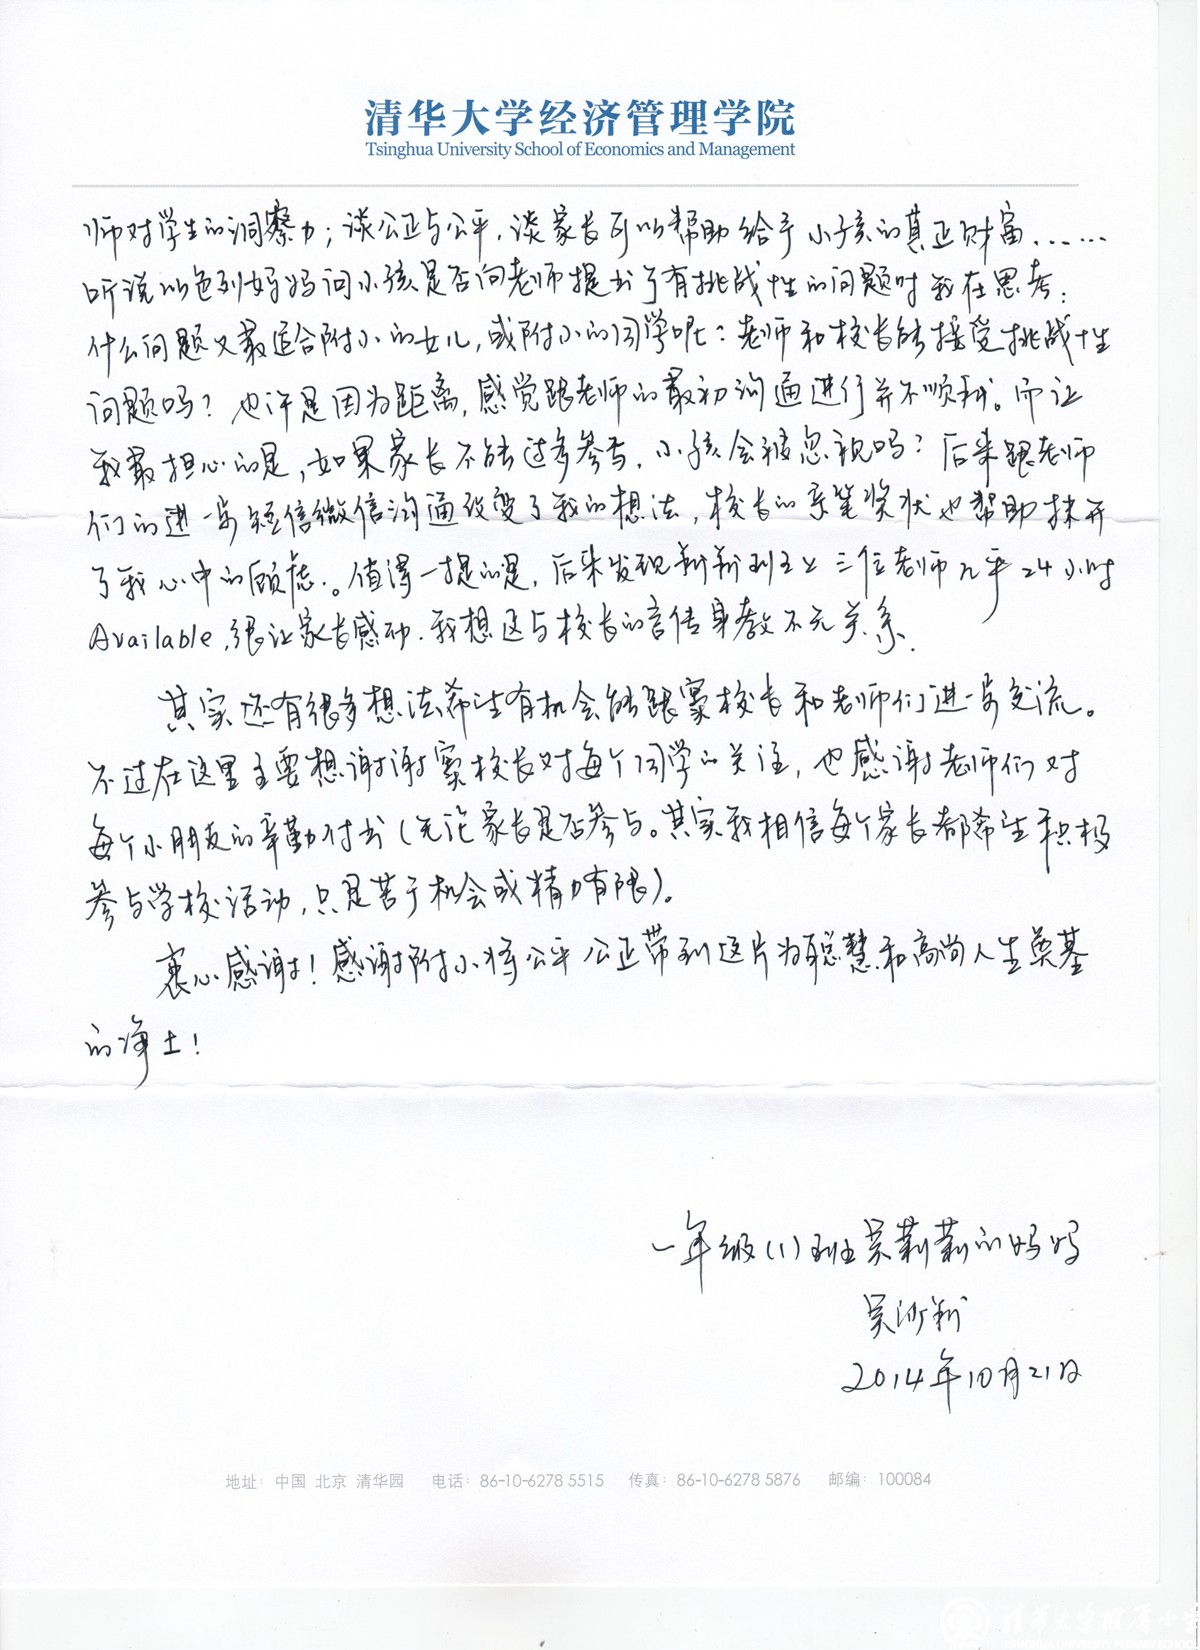 清华大学经济管理学院
Tsinghua University School of Economics and Management
师对学生的洞察力；谈公正与公平，谈家长可以帮助给予小孩的真正财富……
听说以色列妈妈问小孩是否向老师提出了有挑战性的问题时我在思考：
什么问题又最适合附小的女儿，或附小的同学呢？老师和校长能接受挑战性
问题吗？也许是因为距离，感觉跟老师的最初沟通进行并不顺利。而让
我最担心的是，如果家长不能过多参与，小孩会被忽视吗？后来跟老师
们的进一步短信微信沟通改变了我的想法，校长的亲笔奖状也帮助抹开
了我心中的顾虑。值得一提的是，后来发现新新班主上三位老师几乎24小时
Available，很让家长感动．我想这与校长的言传身教不无关系．
其实还有很多想法希望有机会能跟窦校长和老师们进一步交流。
不过在这里主要想谢谢窦校长对每个同学的关注，也感谢老师们对
每个小朋友的辛勤付出（无论家长是否参与。其实我相信每个家长都希望积极
参与学校活动，只是苦于机会或精力有限）。
衷心感谢！感谢附小将公平公正带到这片为聪慧和高尚人生奠基
的净土！
一年级（1）班吴莉莉的妈妈
2014年10月21日
地址：中国 北京 清华园 电话：86-10-6278 5515 传真：86-10-6278 5876 邮编：100084
清华大学附属小学
TSINGHUA UNIVERSITY PRIMARY SCHOOL